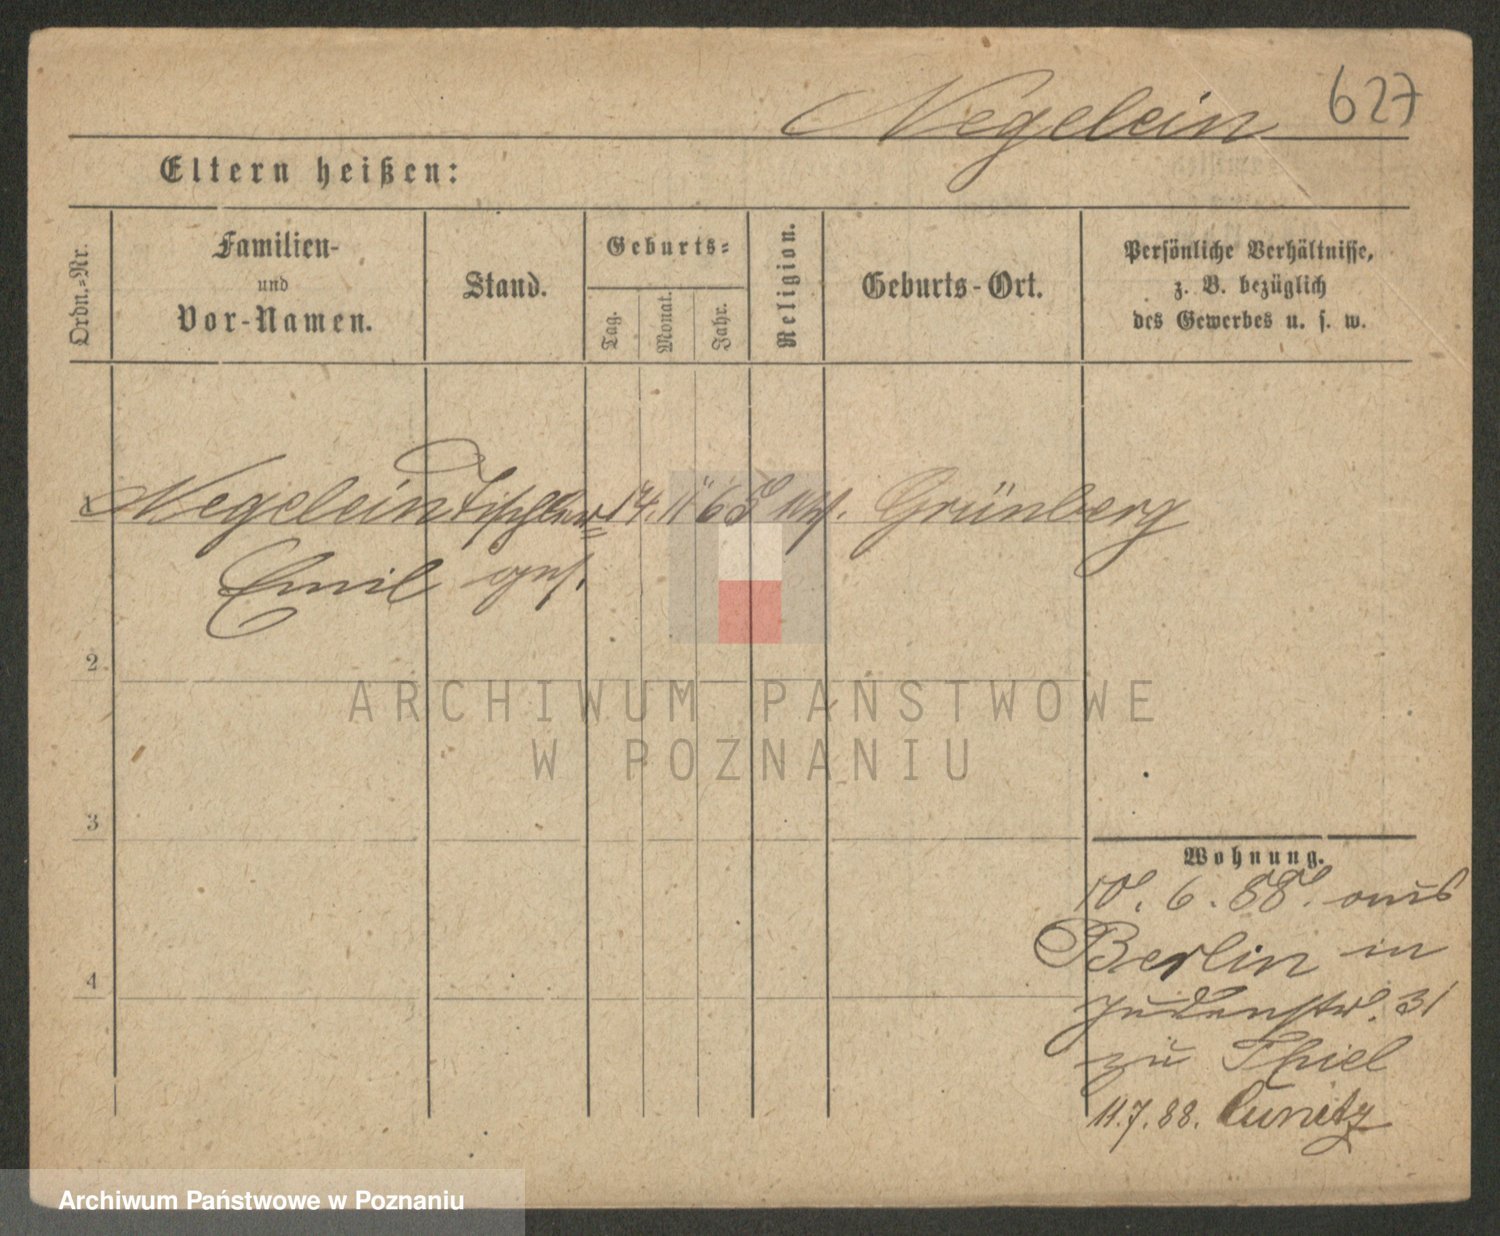 Negelein 627
Eltern heißen:
Ordn.-Nr.
Familien-
und
Vor-Namen.
Stand.
Geburts-
Tag.
Monat.
Jahr.
Religion.
Geburts-Ort.
Persönliche Verhältnisse,
z. B. bezüglich
des Gewerbes u. s. w.
1 Negelein Tischler= 14. 11 Grünberg
Emil ges.
2
3
4
Wohnung.
10. 6. 88. aus
Berlin in
Judenstr. 31
zu Thiel
11.7.88. Cunitz
ARCHIWUM PAŃSTWOWE
W POZNANIU
Archiwum Państwowe w Poznaniu